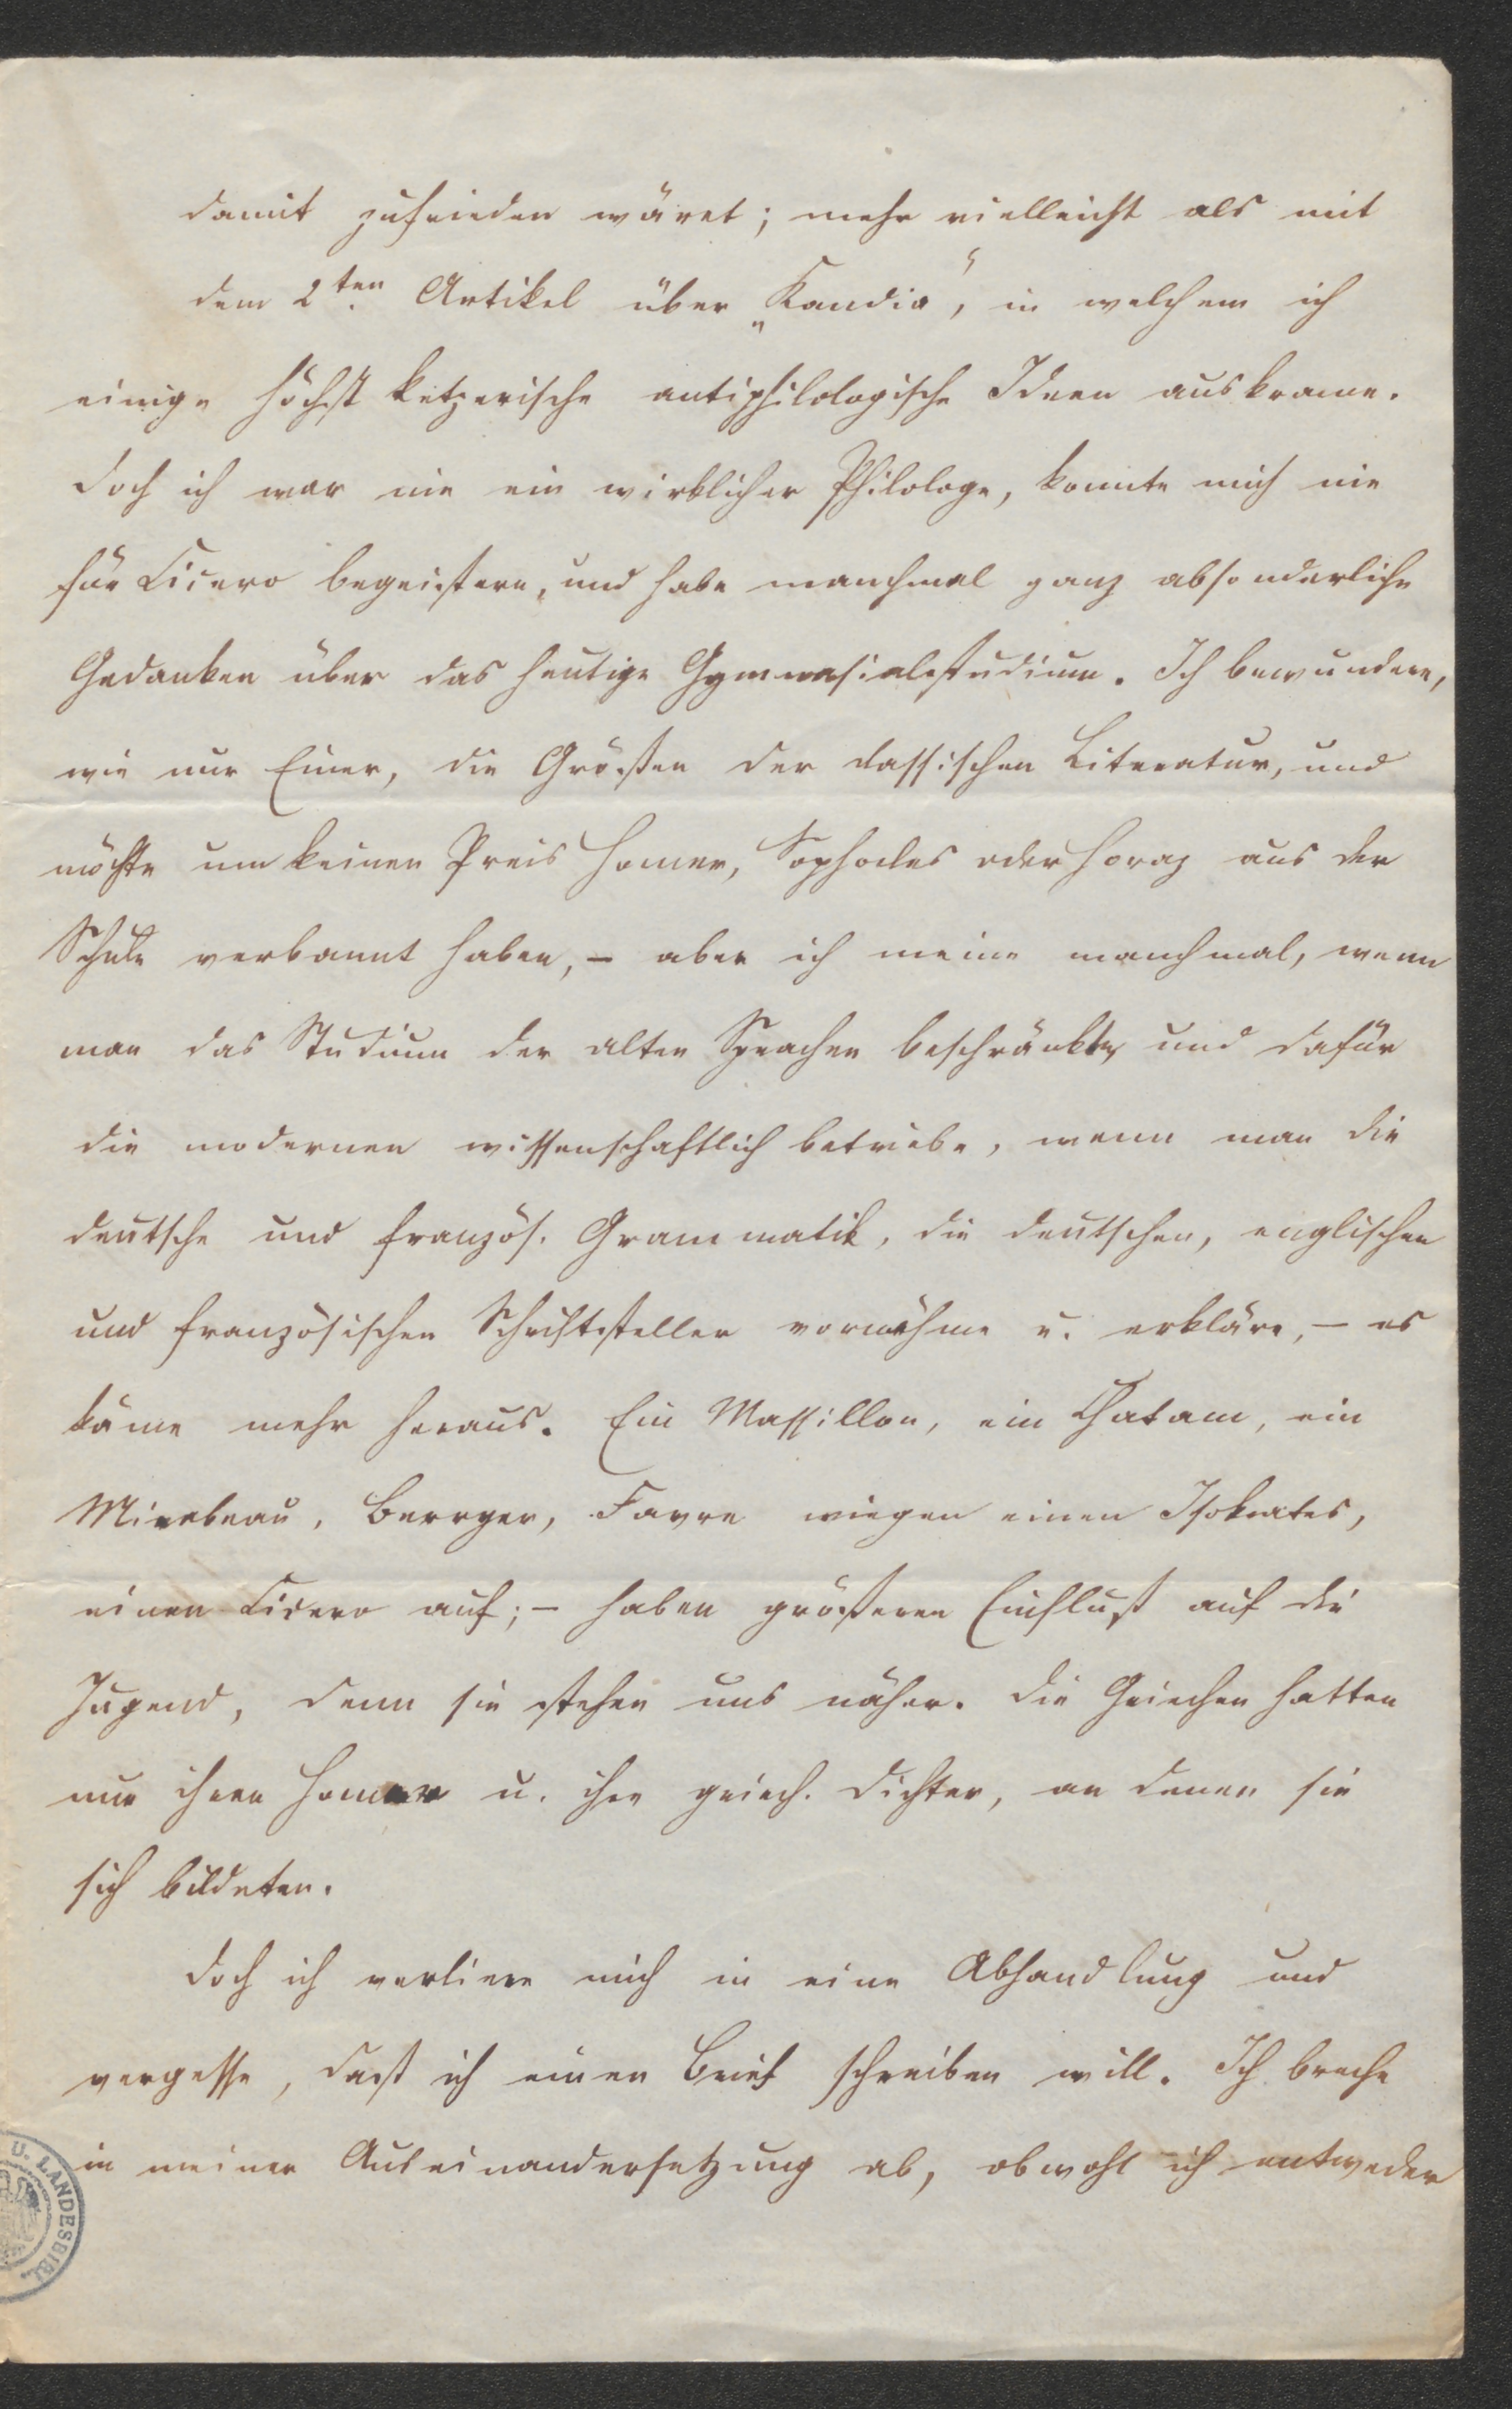 damit zufrieden wäret; mehr vielleicht als mit
dem 2ten Artikel über „Kandia“, in welchem ich
einige höchst ketzerische antiphilologische Ideen auskrame.
Doch ich war nie ein wirklicher Philologe, konnte mich nie
für Cicero begeistern, und habe manchmal ganz absonderliche
Gedanken über das heutige Gymnasialstudium. Ich bewundere,
wie nur Einer, die Größen der classischen Literatur, und
möchte um keinen Preis Homer, Sophocles oder Horaz aus der
Schule verbannt haben, – aber ich meine manchmal, wenn
man das Studium der alten Sprachen beschränkte und dafür
die modernen wissenschaftlich betriebe, wenn man die
deutsche und französ. Grammatik, die deutschen, englischen
und französischen Schriftsteller vornähme u. erkläre, – es
käme mehr heraus. Ein Massillon, ein Chatam, ein
Mirabeau, Berryer, Favre wiegen einen Isokrates,
einen Cicero auf; – haben größeren Einfluß auf die
Jugend, denn sie stehen uns näher. Die Griechen hatten
nur ihren Homer u. ihre griech. Dichter, an denen sie
sich bildeten.
Doch ich verliere mich in eine Abhandlung und
vergesse, daß ich einen Brief schreiben will. Ich breche
in meiner Auseinandersetzung ab, obwohl ich entweder
U. LANDESBIBL.